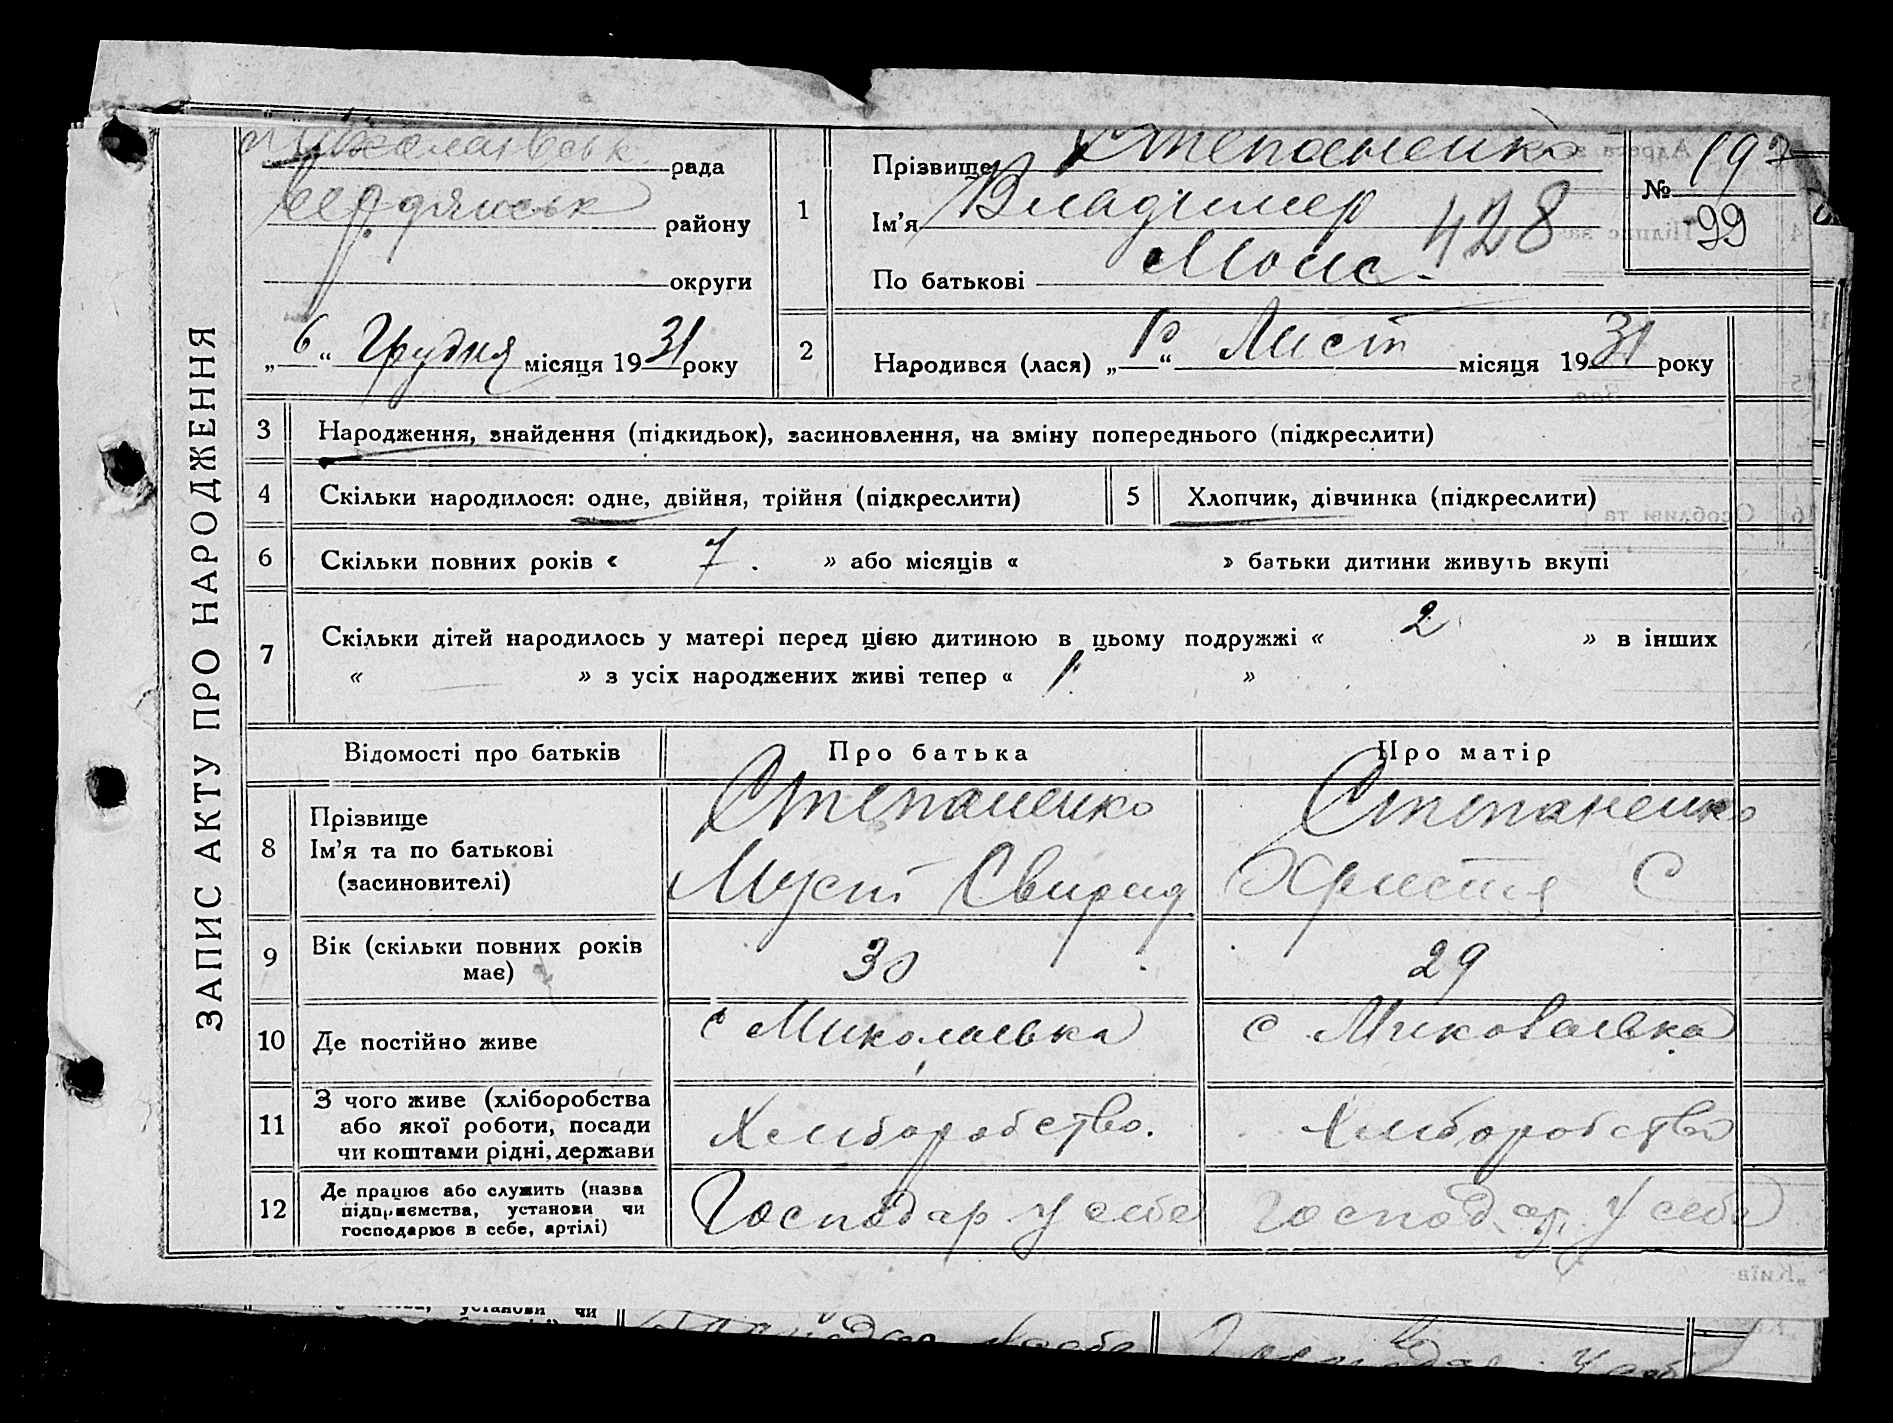 ЗАПИС АКТУ ПРО НАРОДЖЕННЯ
рада
Бердянськ району
округи
„6“ Грудня місяця 1931 року
1
Прізвище Степаненко
Ім'я Владимер
По батькові 428
№ 193
99
2
Народився (лася) „ “ Лист місяця 1931 року
3 Народження, знайдення (підкидьок), засиновлення, на зміну попереднього (підкреслити)
4 Скільки народилося: одне, двійня, трійня (підкреслити)
5 Хлопчик, дівчинка (підкреслити)
6 Скільки повних років « 7. » або місяців « » батьки дитини живуть вкупі
7 Скільки дітей народилось у матері перед цією дитиною в цьому подружжі « 2 » в інших
« — » з усіх народжених живі тепер « 1 »
Відомості про батьків Про батька Про матір
8 Прізвище Степаненко Степаненко
Ім'я та по батькові Свирид Христя С
(засиновителі)
9 Вік (скільки повних років має) 30 29
10 Де постійно живе с Миколаевка с Миковаевка
11 З чого живе (хліборобства або якої роботи, посади чи коштами рідні, держави Хлиборобство. Хлиборобство
12 Де працює або служить (назва підприємства, установи чи господарює в себе, артілі) Господар у себе Господар у себе
установи чи